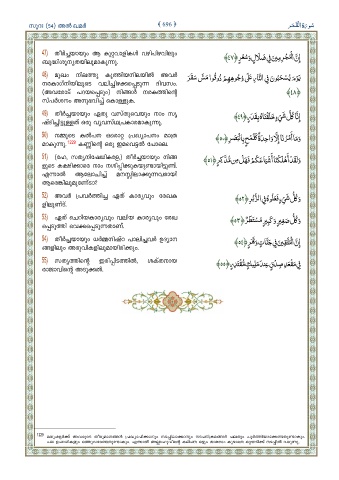 സൂറ (54) അൽ ഖമർ
﴾ 696 ﴿
سورة القمر
47) തീർച്ചയായും ആ കുറ്റവാളികൾ വഴിപിഴവിലും
ബുദ്ധിശൂന്യതയിലുമാകുന്നു.
إِنَّ الْمُجْرِمِينَ فِي ضَلَالٍ وَسُعُرٍ ﴿٤٧﴾
48) മുഖം നിലത്തു കുത്തിയനിലയിൽ അവർ
നരകാഗ്നിയിലൂടെ വലിച്ചിഴക്കപ്പെടുന്ന ദിവസം.
(അവരോട് പറയപ്പെടും) നിങ്ങൾ നരകത്തിന്റെ
സ്പർശനം അനുഭവിച്ച് കൊള്ളുക.
يَوْمَ يُسْحَبُونَ فِي النَّارِ عَلَى وُجُوهِهِمْ ذُوقُوا مَسَّ سَقَرَ
﴿٤٨﴾
49) തീർച്ചയായും ഏതു വസ്തുവെയും നാം സൃ
ഷ്ടിച്ചിട്ടുള്ളത് ഒരു വ്യവസ്ഥപ്രകാരമാകുന്നു.
إِنَّا كُلَّ شَيْءٍ خَلَقْنَاهُ بِقَدَرٍ ﴿٤٩﴾
50) നമ്മുടെ കൽപന ഒരൊറ്റ പ്രഖ്യാപനം മാത്ര
മാകുന്നു. കണ്ണിന്റെ ഒരു ഇമവെട്ടൽ പോലെ.
وَمَا أَمْرُنَا إِلَّا وَاحِدَةٌ كَلَمْحٍ بِالْبَصَرِ ﴿٥٠﴾
51) (ഹേ, സത്യനിഷേധികളേ,) തീർച്ചയായും നിങ്ങ
ളുടെ കക്ഷിക്കാരെ നാം നശിപ്പിക്കുകയുണ്ടായിട്ടുണ്ട്.
എന്നാൽ ആലോചിച്ച് മനസ്സിലാക്കുന്നവരായി
ആരെങ്കിലുമുണ്ടോ?
وَلَقَدْ أَهْلَكْنَا أَشْيَاعَكُمْ فَهَلْ مِنْ مُدَّكِرٍ ﴿٥١﴾
52) അവർ പ്രവർത്തിച്ച ഏത് കാര്യവും രേഖക
ളിലുണ്ട്.
وَكُلُّ شَيْءٍ فَعَلُوهُ فِي الزُّبُرِ ﴿٥٢﴾
53) ഏത് ചെറിയകാര്യവും വലിയ കാര്യവും രേഖ
പ്പെടുത്തി വെക്കപ്പെടുന്നതാണ്.
وَكُلُّ صَغِيرٍ وَكَبِيرٍ مُسْتَطَرٌ ﴿٥٣﴾
54) തീർച്ചയായും ധർമ്മനിഷ്ഠ പാലിച്ചവർ ഉദ്യാന
ങ്ങളിലും അരുവികളിലുമായിരിക്കും.
إِنَّ الْمُتَّقِينَ فِي جَنَّاتٍ وَنَهَرٍ ﴿٥٤﴾
55) സത്യത്തിന്റെ ഇരിപ്പിടത്തിൽ, ശക്തനായ
രാജാവിന്റെ അടുക്കൽ.
فِي مَقْعَدِ صِدْقٍ عِنْدَ مَلِيكٍ مُقْتَدِرٍ ﴿٥٥﴾